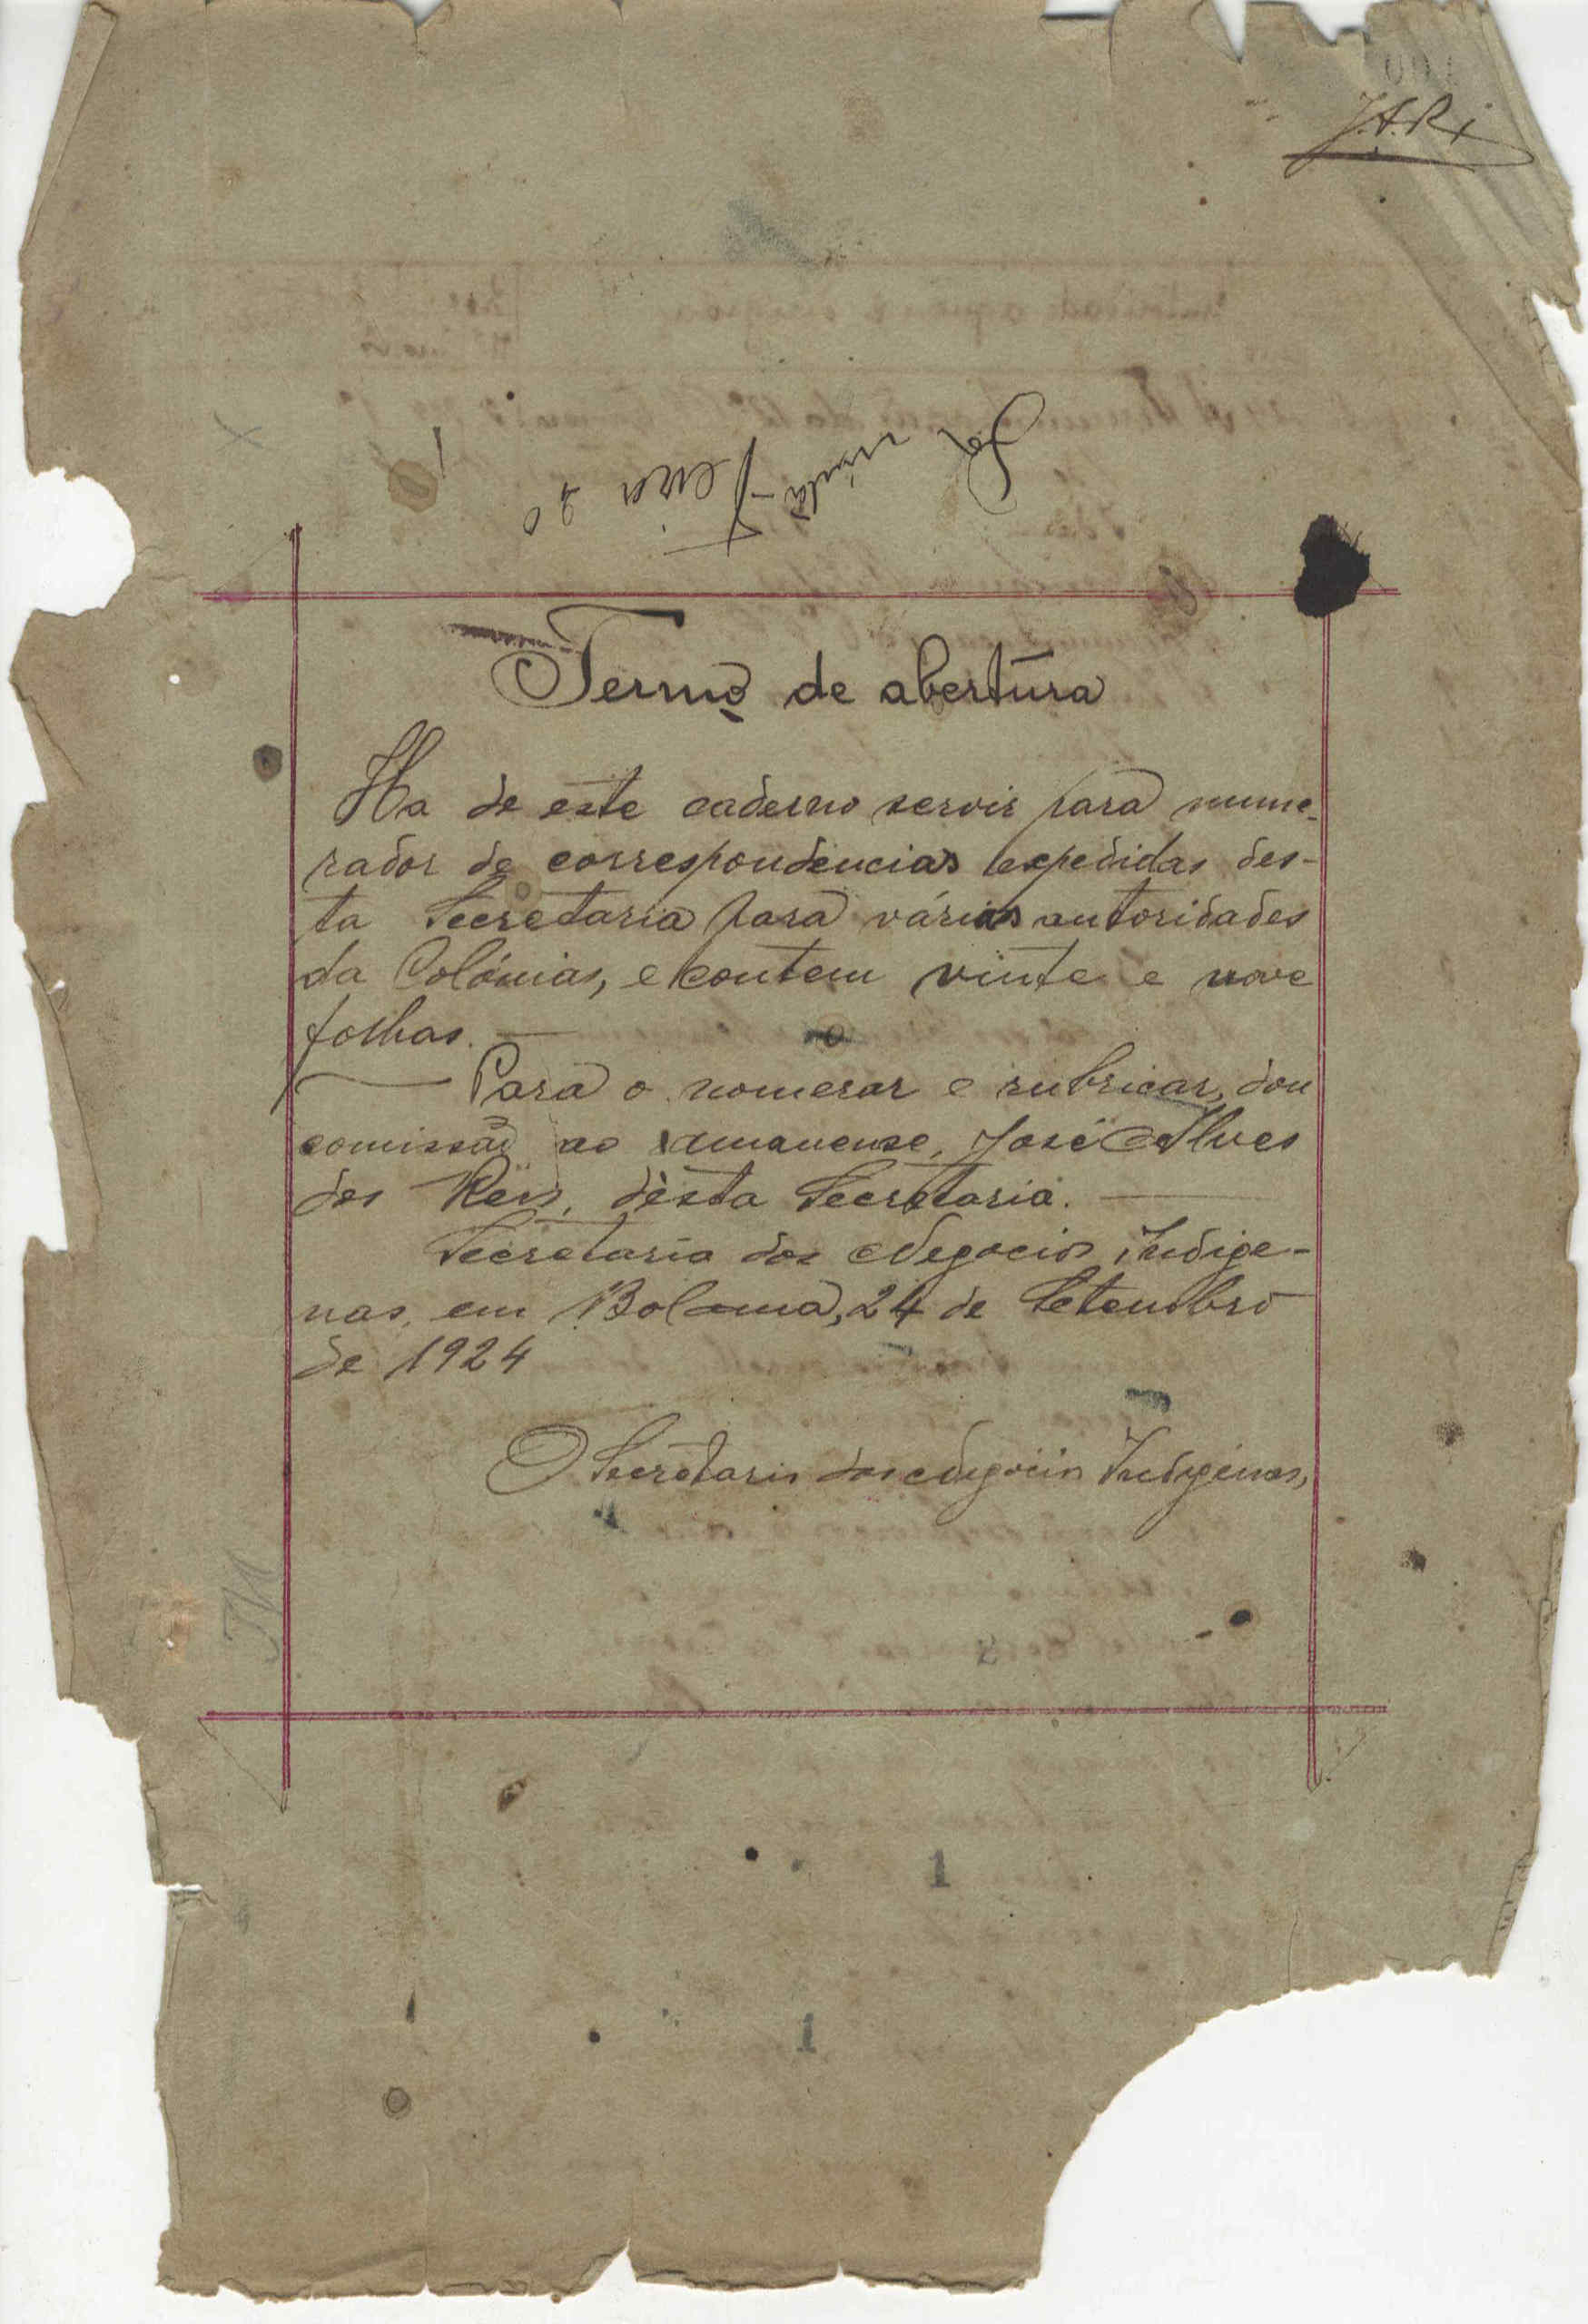 001
J.A.Ri
Termo de abertura
Ha de este caderno servir para nume-
rador de correspondencias expedidas des-
ta Secretaria para várias autoridades
da Colónias, e contem vinte e nove
folhas.
Para o nomerar e rubricar, dou
comissão ao amanuense, José Alves
dos Reis, désta Secretaria.
Secretaria dos Negocios Indige-
nas, em Bolama, 24 de Setembro
de 1924
O Secretario dos Negócios Indigenas,
1
1